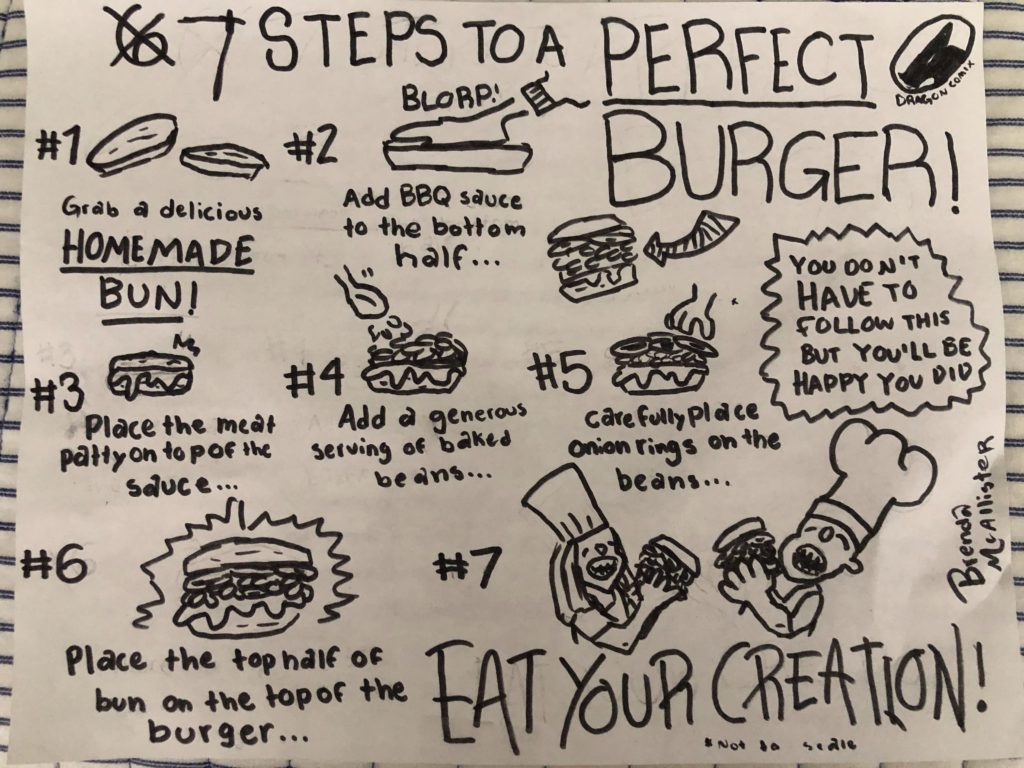 6 7 STEPS TO A PERFECT
BURGER!
DRAGON COMIX
#1
Grab a delicious
HOMEMADE
BUN!
#2
BLORP!
Add BBQ sauce
to the bottom
half...
#3
Place the meat
patty on top of the
sauce...
#4
Add a generous
serving of baked
beans...
#5
carefully place
onion rings on the
beans...
YOU DON'T
HAVE TO
FOLLOW THIS
BUT YOU'LL BE
HAPPY YOU DID
#6
Place the top half of
bun on the top of the
burger...
#7
EAT YOUR CREATION!
*Not to scale
Brenda
McAllister